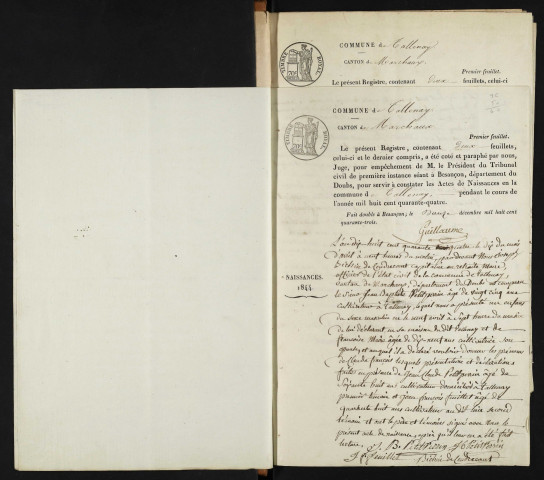 COMMUNE de Tallenay
CANTON de Marchaux
Premier feuillet.
Le présent Registre, contenant Deux feuillets, celui-ci
COMMUNE de Tallenay
CANTON de Marchaux
Premier feuillet.
Le présent Registre, contenant Deux feuillets,
celui-ci et le dernier compris, a été coté et paraphé par nous,
Juge, pour empêchement de M. le Président du Tribunal
civil de première instance séant à Besançon, département du
Doubs, pour servir à constater les Actes de Naissances en la
commune de Tallenay pendant le cours de
l'année mil huit cent quarante-quatre.
Fait double à Besançon, le décembre mil huit cent
quarante-trois.
Guillaume
NAISSANCES.
1844.
L'an dix huit cent quarante quatre le dix du mois
d'avril à neuf heures du matin, pardevant Nous
capitaine en retraite Maire
officier de l'état civil de la commune de Tallenay,
canton de Marchaux, département du Doubs est comparu
le sieur Jean Baptiste âgé de vingt cinq ans
cultivateur à Tallenay, lequel nous a présenté un enfant
du sexe masculin né le neuf avril à sept heures du
de lui déclarant en sa maison à Tallenay et de
françoise âgée de dix neuf ans cultivatrice son
épouse, et auquel il a déclaré vouloir donner les prénoms
de Claude françois lesquels présentation et déclaration
faites en présence de Jean Claude âgé de
soixante huit ans cultivateur domicilié à Tallenay
premier témoin et Jean françois feuillet âgé de
quarante huit ans cultivateur au dit lieu second
témoin et ont le père et témoins signé avec nous le
présent acte de naissance, après que lecture en a été fait
lecture.
J. B.
J. f. feuillet